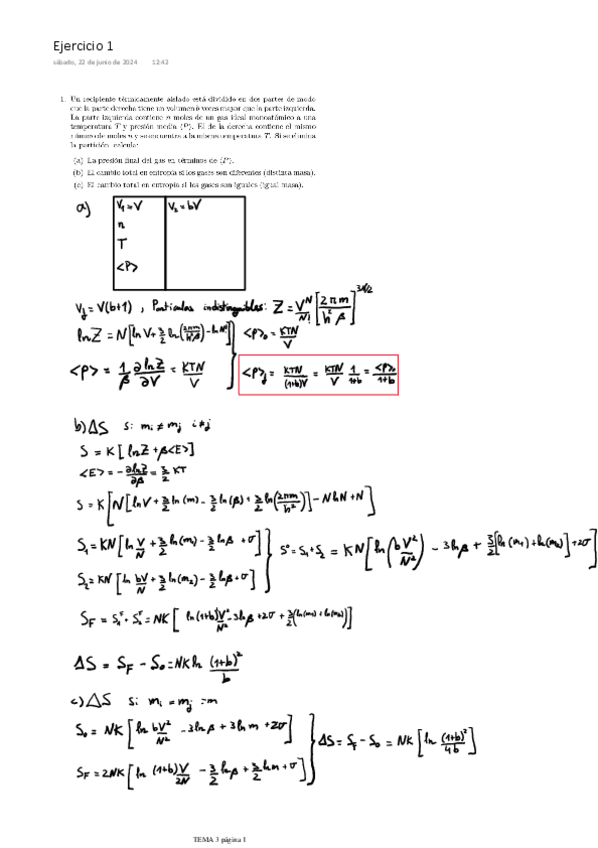 Ejercicio 1
sábado, 22 de junio de 2024 12:42
1. Un recipiente térmicamente aislado está dividido en dos partes de modo
que la parte derecha tiene un volumen b veces mayor que la parte izquierda.
La parte izquierda contiene n moles de un gas ideal monoatómico a una
temperatura T y presión media ⟨P⟩. El de la derecha contiene el mismo
número de moles n y se encuentra a la misma temperatura T. Si se elimina
la partición, calcule:
(a) La presión final del gas en términos de ⟨P⟩.
(b) El cambio total en entropía si los gases son diferentes (distinta masa).
(c) El cambio total en entropía si los gases son iguales (igual masa).
a) V₁=V V₂=bV
n
T
<P>
V_f = V(b+1) , Partículas indistinguibles: Z = V^N/N! [2πm/h²β]^3N/2
ln Z = N[ln V + 3/2 ln(2πm/h²β)] - ln N! <P>₀ = KTN/V
<P> = 1/β ∂lnZ/∂V = KTN/V <P>_f = KTN/(1+b)V = KTN/V 1/1+b = <P>₀/1+b
b) ΔS si mᵢ ≠ mⱼ i≠j
S = K[lnZ + β<E>]
<E> = -∂lnZ/∂β = 3/2 KT
S = K[N[ln V + 3/2 ln(m) - 3/2 ln(β) + 3/2 ln(2πm/h²)] - N ln N + N]
S₁ = KN[ln V/N + 3/2 ln(m₁) - 3/2 ln β + σ] S⁰ = S₁ + S₂ = KN[ln(bV²/N²) - 3 ln β + 3/2[ln(m₁) + ln(m₂)] + 2σ]
S₂ = KN[ln bV/N + 3/2 ln(m₂) - 3/2 ln β + σ]
S_F = S₁^F + S₂^F = NK[ln (1+b)²V²/N² - 3 ln β + 2σ + 3/2(ln(m₁) + ln(m₂))]
ΔS = S_F - S₀ = NK ln (1+b)²/b
c) ΔS si mᵢ = mⱼ = m
S₀ = NK[ln bV²/N² - 3 ln β + 3 ln m + 2σ]
ΔS = S_F - S₀ = NK[ln (1+b)²/4b]
S_F = 2NK[ln (1+b)V/2N - 3/2 ln β + 3/2 ln m + σ]
TEMA 3 página 1